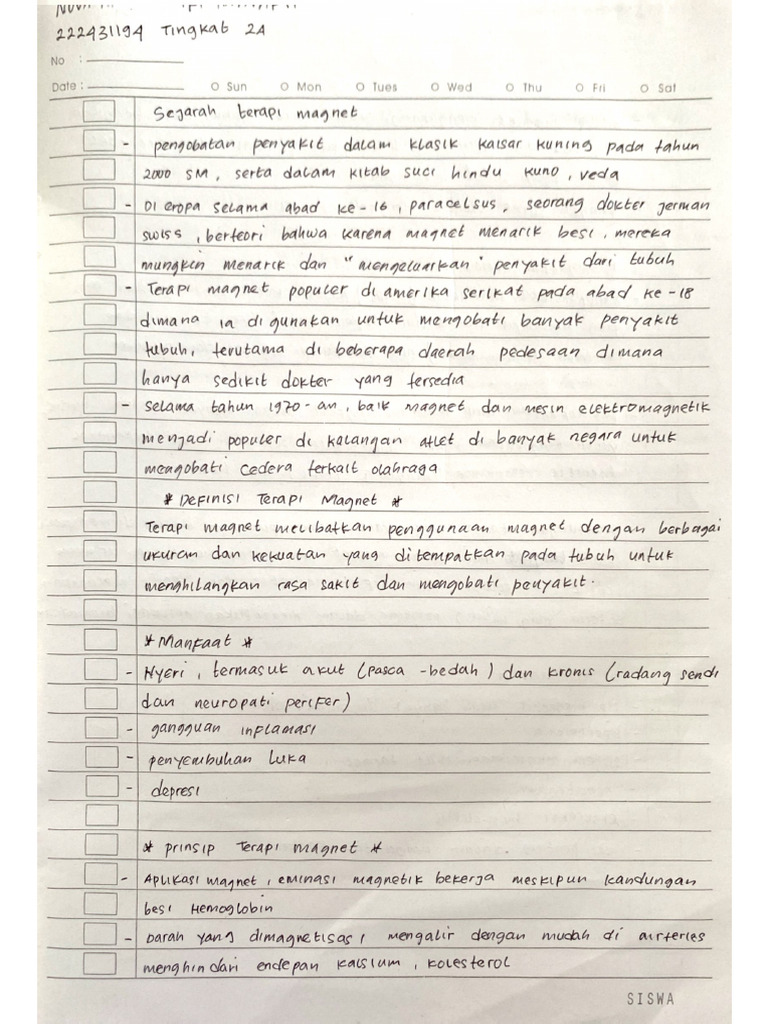 222431194 Tingkab 2A
No :
Date : Sun Mon Tues Wed Thu Fri Sat
Sejarah terapi magnet
- pengobatan penyakit dalam klasik kaisar kuning pada tahun
2000 SM, serta dalam kitab suci hindu kuno, veda
- Di eropa selama abad ke-16, paracelsus, seorang dokter jerman
swiss, berteori bahwa karena magnet menarik besi, mereka
mungkin menarik dan "mengeluarkan" penyakit dari tubuh
- Terapi magnet populer di amerika serikat pada abad ke-18
dimana ia digunakan untuk mengobati banyak penyakit
tubuh, terutama di beberapa daerah pedesaan dimana
hanya sedikit dokter yang tersedia
- selama tahun 1970-an, baik magnet dan mesin elektromagnetik
menjadi populer di kalangan atlet di banyak negara untuk
mengobati cedera terkait olahraga
* Definisi Terapi Magnet *
Terapi magnet melibatkan penggunaan magnet dengan berbagai
ukuran dan kekuatan yang ditempatkan pada tubuh untuk
menghilangkan rasa sakit dan mengobati penyakit.
* Manfaat *
- Nyeri, termasuk akut (pasca-bedah) dan kronis (radang sendi
dan neuropati perifer)
- gangguan inflamasi
- penyembuhan luka
- depresi
* prinsip Terapi magnet *
- Aplikasi magnet, eminasi magnetik bekerja meskipun kandungan
besi Hemoglobin
- Darah yang dimagnetisasi mengalir dengan mudah di airteries
menghindari endepan kalsium, kolesterol
SISWA